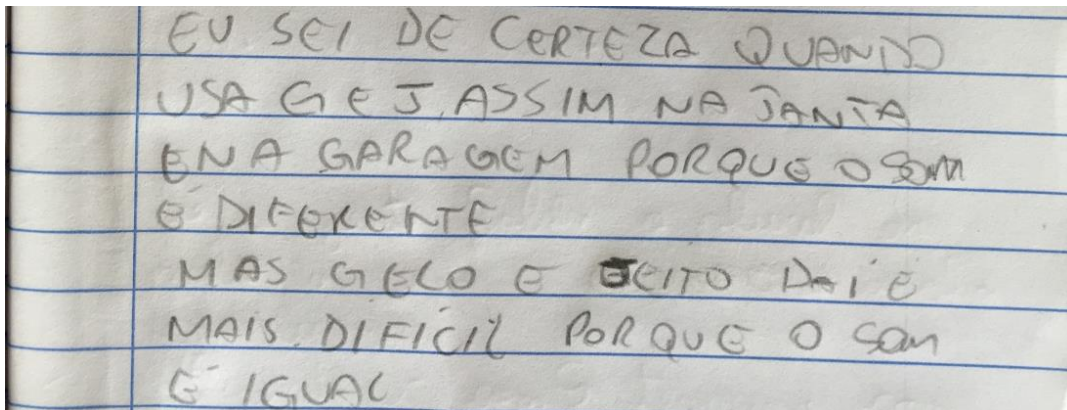 EU SEI DE CERTEZA QUANDO
USA G E J. ASSIM NA JANTA
E NA GARAGEM PORQUE O SOM
É DIFERENTE
MAS GELO E JEITO DAI É
MAIS. DIFÍCIL PORQUE O SOM
É IGUAL